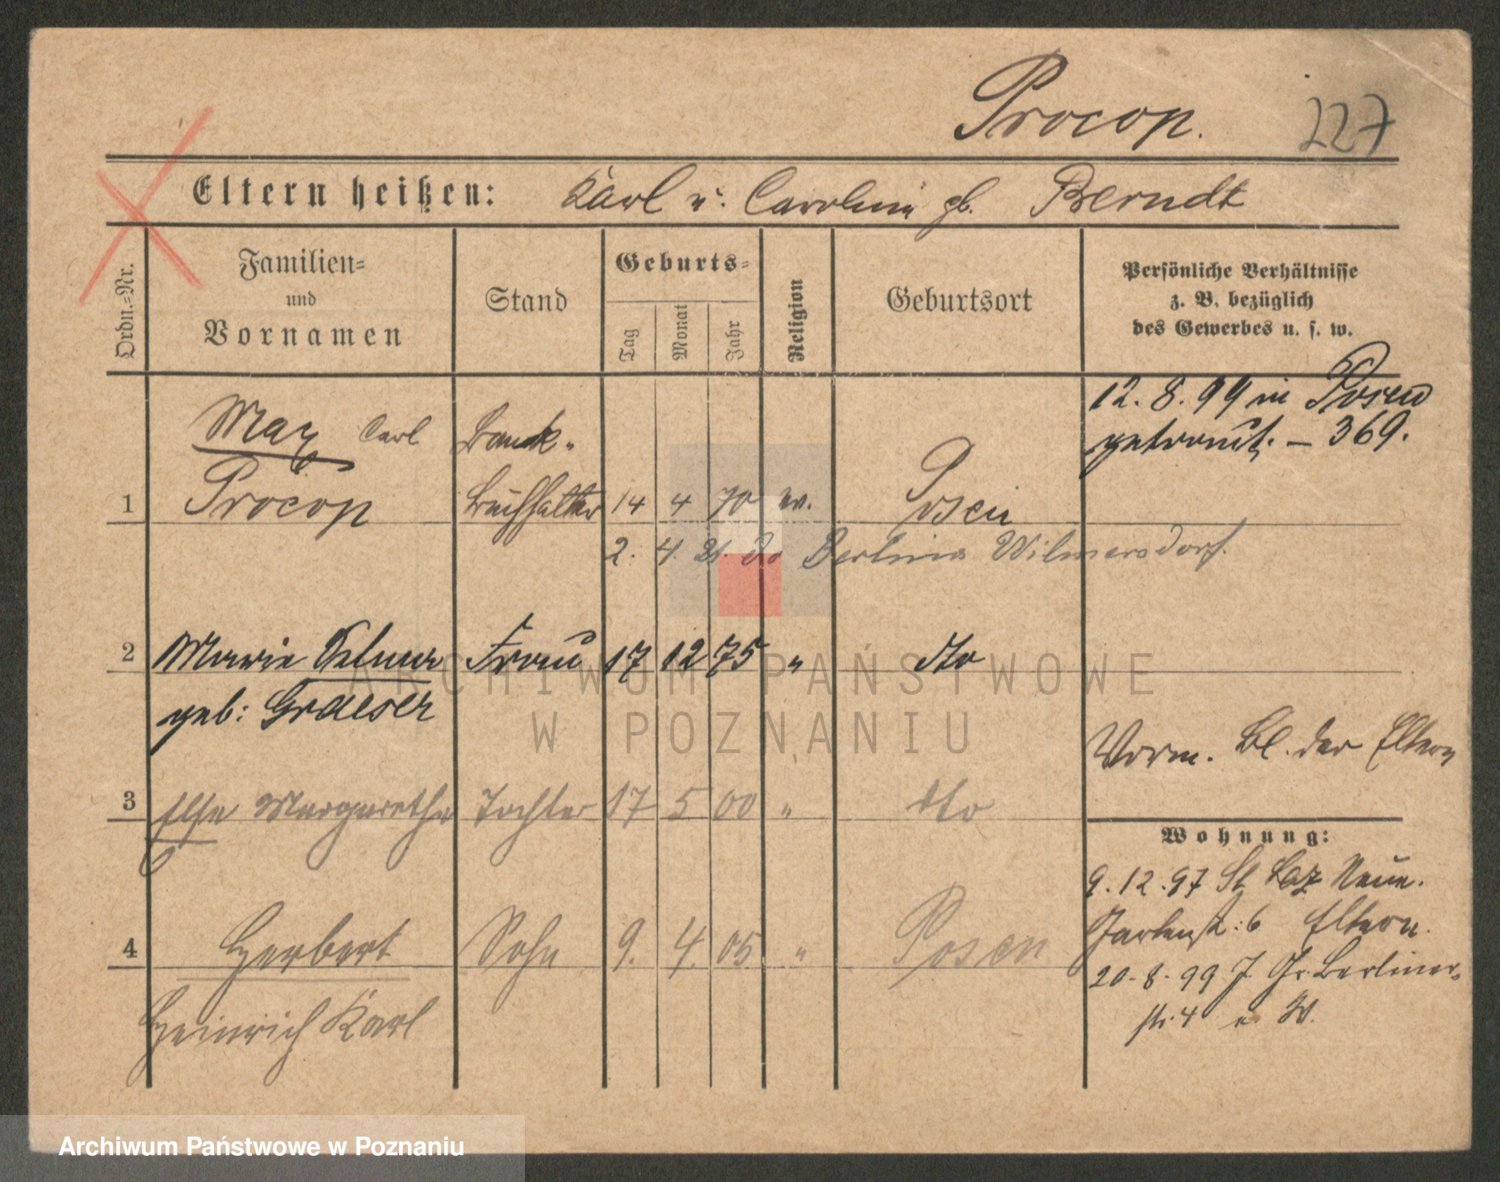 Procop.
227
Eltern heißen: Karl u. Caroline gb. Berndt
Ordn.-Nr.
Familien-
und
Vornamen
Stand
Geburts-
Tag
Monat
Jahr
Religion
Geburtsort
Persönliche Verhältnisse
z. B. bezüglich
des Gewerbes u. s. w.
12. 8. 99 in Posen
getraut. – 369.
Max Carl
Procop
Bank-
Buchhalter
1
14 4 70 ev. Posen
2. 4. 21. Berlin Wilmersdorf.
2 Marie Selma Frau 17 12 75 " dto
geb: Graeser
Vorm. Bl. der Eltern
3 Else Margarethe Tochter 17 5 00 " dto
Wohnung:
9. 12. 97 St Laz Neue.
Gartenst: 6 Eltern.
4 Herbert Sohn 9. 4. 05 " Posen
20. 8. 99 J. Gr. Berliner-
Heinrich Karl
str. 4 W.
ARCHIWUM PAŃSTWOWE
W POZNANIU
Archiwum Państwowe w Poznaniu